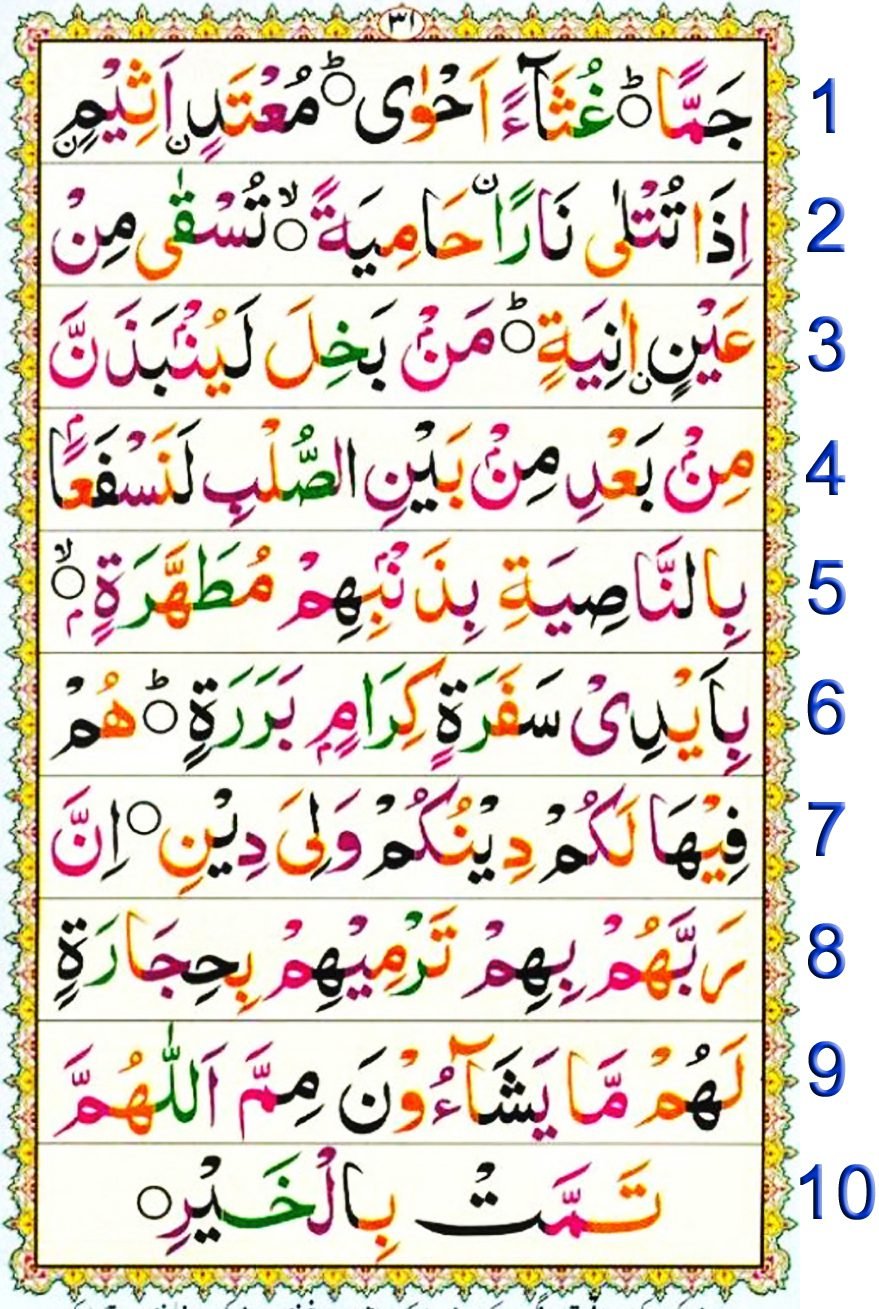 ٣١
جَمًّا ؕ غُثَآءً اَحْوٰى ؕ مُعْتَدٍ اَثِيْمٍ 1
اِذَا تُتْلٰى نَارًا حَامِيَةً ۙ تُسْقٰى مِنْ 2
عَيْنٍ اٰنِيَةٍ ؕ مَنْۢ بَخِلَ لَيُنْۢبَذَنَّ 3
مِنْۢ بَعْدِ مِنْۢ بَيْنِ الصُّلْبِ لَنَسْفَعًۢا 4
بِالنَّاصِيَةِ بِذَنْۢبِهِمْ مُطَهَّرَةٍۭ ۙ 5
بِاَيْدِىْ سَفَرَةٍ كِرَامٍۭ بَرَرَةٍ ؕ هُمْ 6
فِيْهَا لَكُمْ دِيْنُكُمْ وَلِىَ دِيْنِ ○ اِنَّ 7
رَبَّهُمْ بِهِمْ تَرْمِيْهِمْ بِحِجَارَةٍ 8
لَهُمْ مَّا يَشَآءُوْنَ مِمَّ اَللّٰهُمَّ 9
تَمَّتْ بِالْخَيْرِ ○ 10